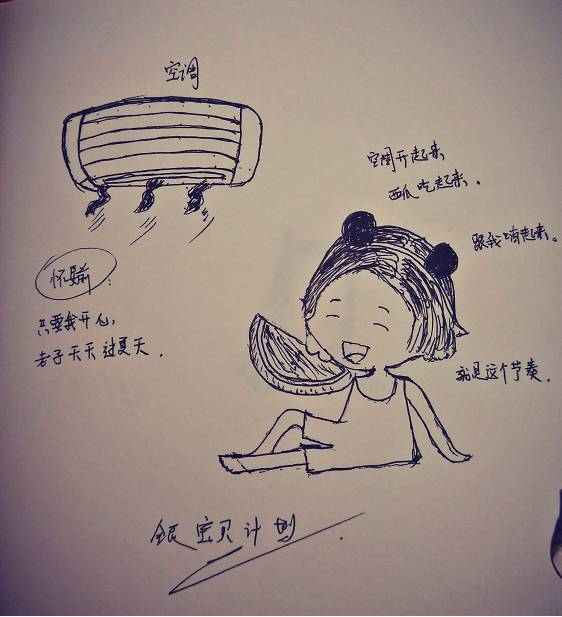 空调
空调开起来
西瓜吃起来.
跟我嗨起来。
怀孕前:
只要我开心,
老子天天过夏天.
就是这个节奏.
银宝贝计划.